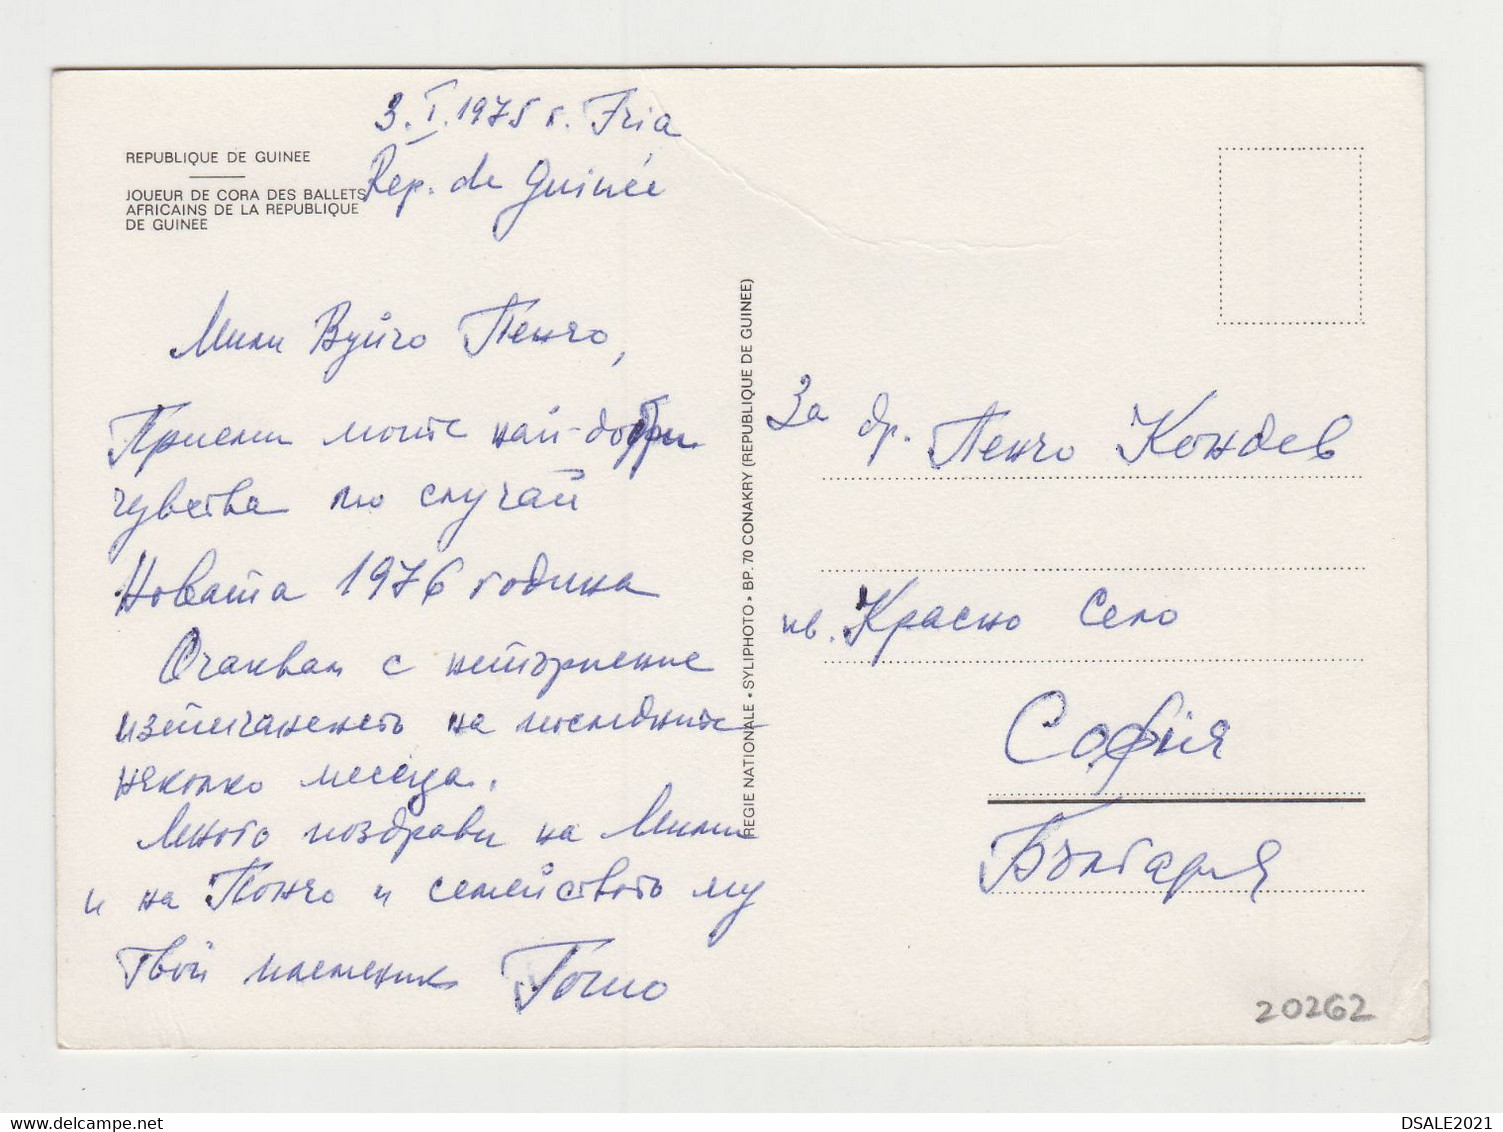 3.I.1975 г. Fria
Rep. de Guinée
REPUBLIQUE DE GUINEE
JOUEUR DE CORA DES BALLETS
AFRICAINS DE LA REPUBLIQUE
DE GUINEE
Мили Вуйчо Пенчо,
Приеми моите най-добри
чувства по случай
Новата 1976 година
Очаквам с нетърпение
изтичането на последните
няколко месеца.
Много поздрави на Мими
и на Пенчо и семейството му
Твой племеник Гошо
REGIE NATIONALE • SYLIPHOTO • BP. 70 CONAKRY (REPUBLIQUE DE GUINEE)
За др. Пенчо Кондев
кв. Красно Село
София
България
20262
DSALE2021